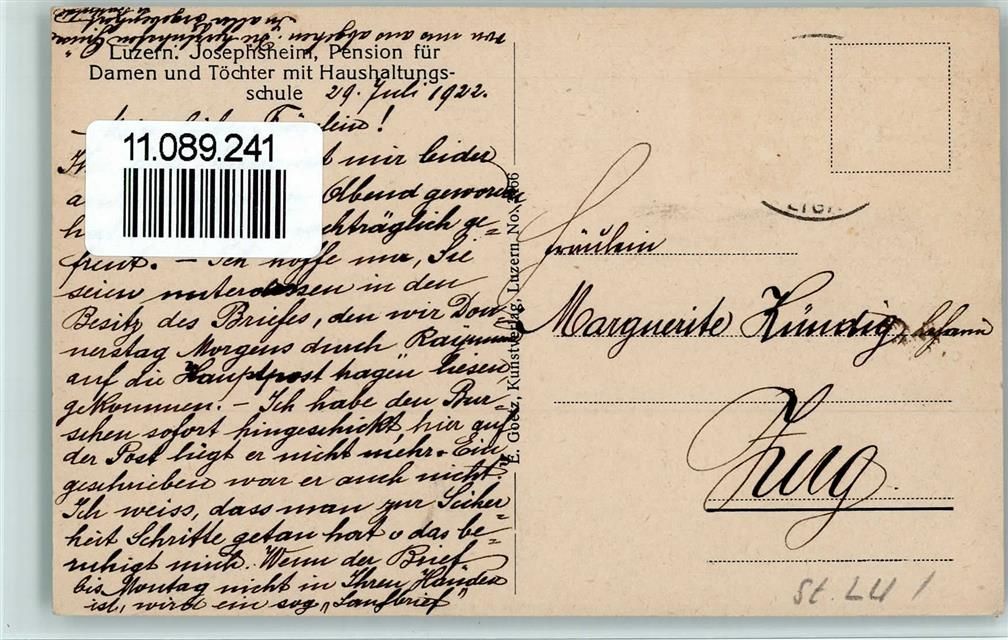 von uns aus abgehen.
Luzern. Josephsheim, Pension für
Damen und Töchter mit Haushaltungs-
schule 29. Juli 1922.
Fräulein!
11.089.241
mir leider
Abend geworden
chträglich ge-
freut. – Ich hoffe nur, Sie
seien unterdessen in den
Besitz des Briefes, den wir Don-
nerstag Morgens durch
auf die Hauptpost tragen liessen,
gekommen. – Ich habe den Bur-
schen sofort hingeschickt, hier auf
der Post liegt er nicht mehr. Ein
geschrieben war er auch nicht.
Ich weiss, dass man zur Sicher
heit Schritte getan hat u das be-
ruhigt mich. Wenn der Brief
bis Montag nicht in Ihren Händen
ist, wird ein sog. „Laufbrief"
E. Goetz, Kunstverlag, Luzern No.
Fräulein
Marguerite Zündig
Zug
St. LU 1